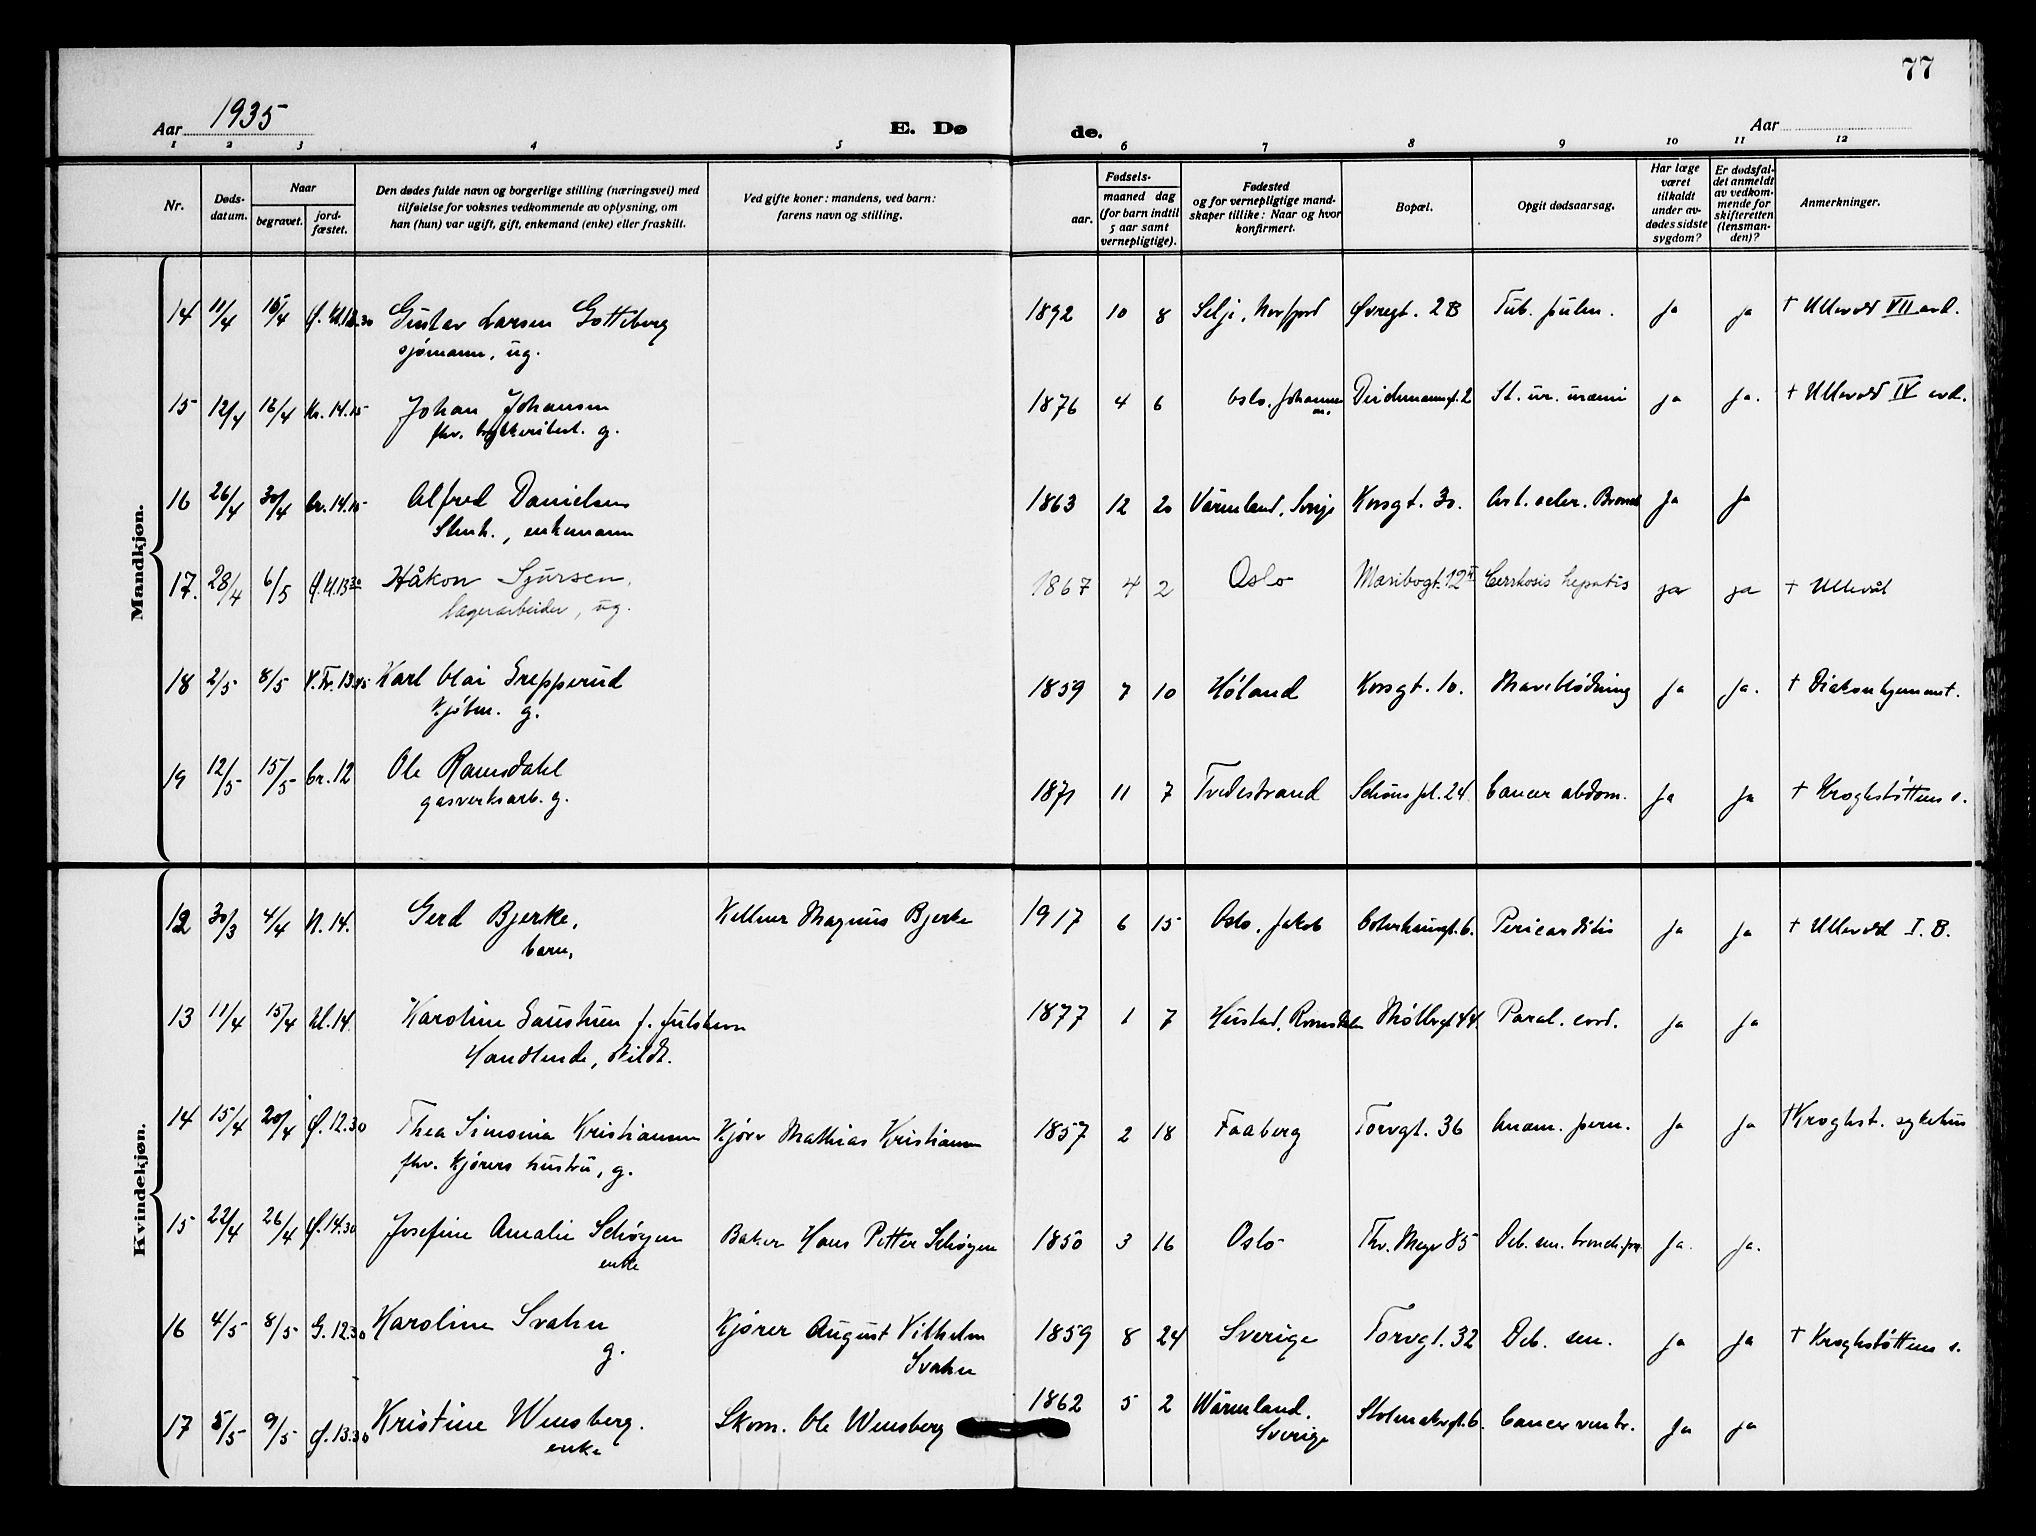 77
Aar 1935
E. Dø
de.
Aar
1 2 3 4 5 6 7 8 9 10 11 12
Nr.
Døds-
datum.
Naar
begravet.
jord-
fæstet.
Den dødes fulde navn og borgerlige stilling (næringsvei) med
tilføielse for voksnes vedkommende av oplysning, om
han (hun) var ugift, gift, enkemand (enke) eller fraskilt.
Ved gifte koner: mandens, ved barn:
farens navn og stilling.
Fødsels-
aar.
maaned dag
(for barn indtil
5 aar samt
vernepligtige).
Fødested
og for vernepligtige mand-
skaper tillike: Naar og hvor
konfirmert.
Bopæl.
Opgit dødsaarsag.
Har læge
været
tilkaldt
under av-
dødes sidste
sygdom?
Er dødsfal-
det anmeldt
av vedkom-
mende for
skifteretten
(lensman-
den)?
Anmerkninger.
Mandkjøn.
14 11/4 16/4 Gustav Larsen Gottiberg 1892 10 8 Selje, Nordfjord Øvregt. 2B Tub. pulm. ja ja + Ullevål VII avd.
sjømann, ug.
15 12/4 18/4 Kr. 14.15 Johan Johansen 1876 4 6 Oslo, Johannes m. Deichmannsgt. 2 St. ur. uræmi ja ja. + Ullevål IV avd.
fhv. g.
16 26/4 30/4 Cr. 14.15 Alfred Danielsen 1863 12 20 Värmland, Sverige Korsgt. 30. Art. scler. Bronch ja ja
Stenh., enkemann
17. 28/4 6/5 Håkon Sjursen, 1867 4 2 Oslo Maribogt. 12 II Cerrhosis hepatis ja ja + Ullevål
lagerarbeider, ug.
18 2/5 8/5 V. Kr. 13.45 Karl Olai Grepperud 1859 7 10 Høland Korsgt. 10. Maveblødning ja ja. + Diakonhjemmet.
kjøbm. g.
19 12/5 15/5 Cr. 12 Ole Ramsdahl 1871 11 7 Tvedestrand Schous pl. 24 Cancer abdom. ja ja + Kroghstøttens s.
gasverksarb. g.
Kvindekjøn.
12 30/3 4/4 N. 14. Gerd Bjerke, Kelner Magnus Bjerke 1917 6 15 Oslo, Jakob Osterhausgt. 6. Pericarditis ja ja + Ullevål I. B.
barn,
13 11/4 15/4 Ul. 14. Karoline f. 1877 1 7 Hustad, Romsdalen Møllergt. 44. Paral. cord. ja ja
Handlende, skildt.
14 15/4 20/4 Ø. 12.30 Thea Simonia Kristiansen Kjører Mathias Kristiansen 1857 2 18 Faaberg Torvgt. 36 Anæm. pern. ja ja + Kroghst. sykehus
fhv. kjørers hustru, g.
15 22/4 26/4 Ø. 14.30 Josefine Amalie Schøyen Baker Hans Petter Schøyen 1850 3 16 Oslo Thv. Meyer 85 Deb. sen. bronch. pn. ja. ja.
enke
16 4/5 8/5 G. 12.30 Karoline Svahn Kjører August Vilhelm 1859 8 24 Sverige Torvgt. 32 Deb. sen. ja ja + Kroghstøttens s.
g. Svahn
17 5/5 9/5 Ø. 13.30 Kristine Wensberg. Skom. Ole Wensberg 1862 5 2 Wärmland, Stolmakergt. 6. Cancer ventr. ja ja
enke Sverige